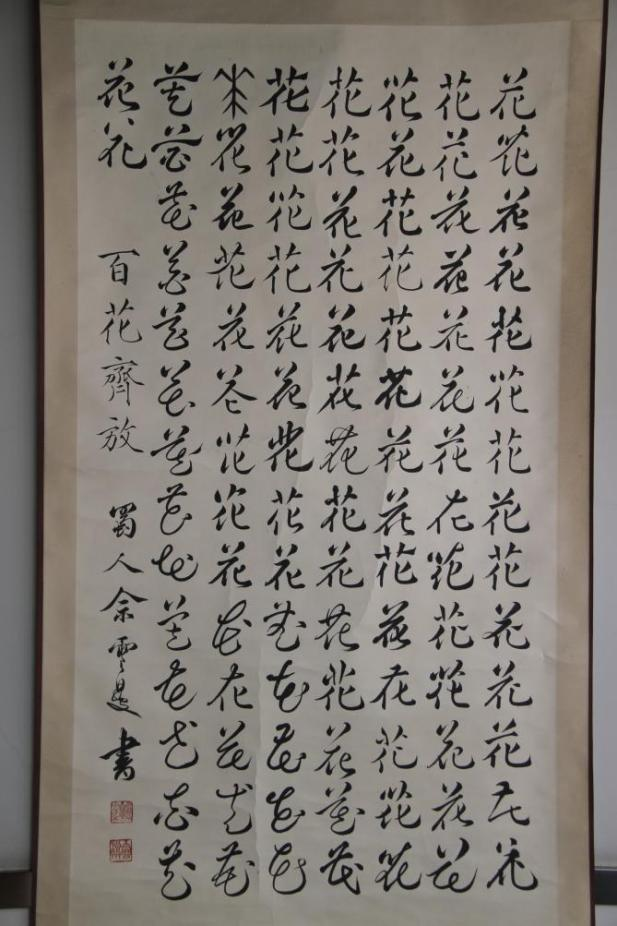 花花花花花花花花花花花花花花
花花花花花花花花花花花花花花
花花花花花花花花花花花花花花
花花花花花花花花花花花花花花
花花花花花花花花花花花花花花
花花花花花花花花花花花花花花
花花花花花花花花花花花花花花
花花 百花齊放 蜀人余雲書